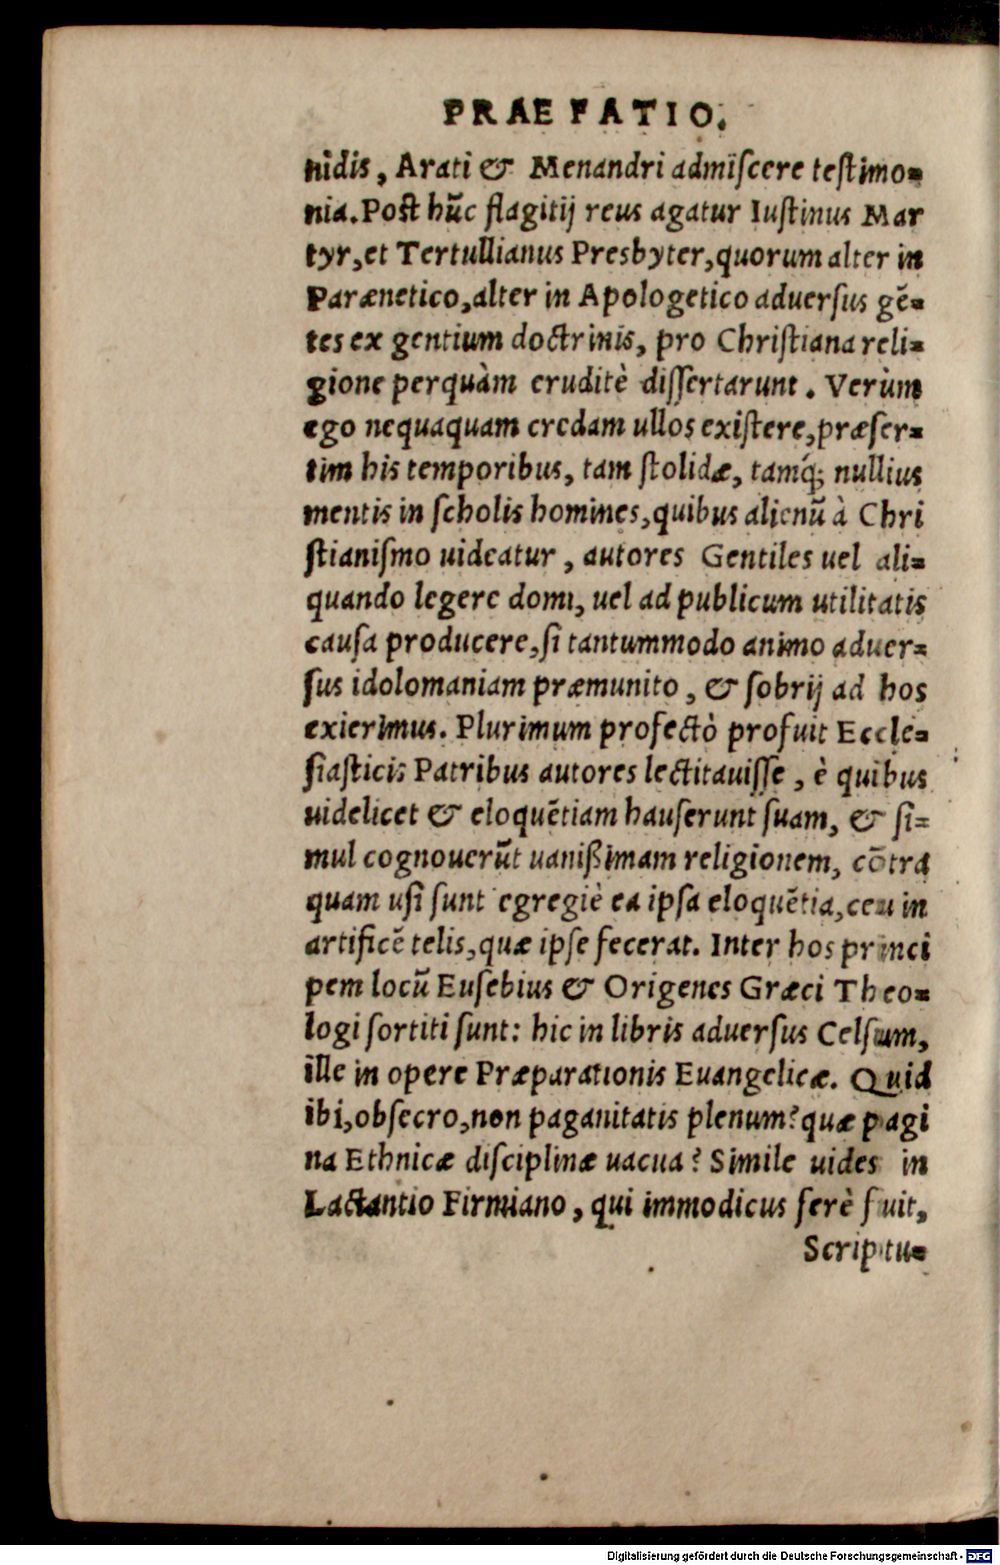 PRAEFATIO.
nidis, Arati & Menandri admiscere testimo=
nia. Post hūc flagitij reus agatur Iustinus Mar
tyr, et Tertullianus Presbyter, quorum alter in
Parænetico, alter in Apologetico aduersus gē=
tes ex gentium doctrinis, pro Christiana reli=
gione perquàm eruditè dissertarunt. Verùm
ego nequaquam credam ullos existere, præser=
tim his temporibus, tam stolidæ, tamq́; nullius
mentis in scholis homines, quibus alienū à Chri
stianismo uideatur, autores Gentiles uel ali=
quando legere domi, uel ad publicum utilitatis
causa producere, si tantummodo animo aduer=
sus idolomaniam præmunito, & sobrij ad hos
exierimus. Plurimum profectò profuit Eccle=
siasticis Patribus autores lectitauisse, è quibus
uidelicet & eloquētiam hauserunt suam, & si=
mul cognouerūt uanißimam religionem, cōtra
quam usi sunt egregiè ea ipsa eloquētia, ceu in
artificē telis, quæ ipse fecerat. Inter hos princi
pem locū Eusebius & Origenes Græci Theo=
logi sortiti sunt: hic in libris aduersus Celsum,
ille in opere Præparationis Euangelicæ. Quid
ibi, obsecro, non paganitatis plenum? quæ pagi
na Ethnicæ disciplinæ uacua? Simile uides in
Lactantio Firmiano, qui immodicus ferè fuit,
Scriptu=
Digitalisierung gefördert durch die Deutsche Forschungsgemeinschaft - DFG